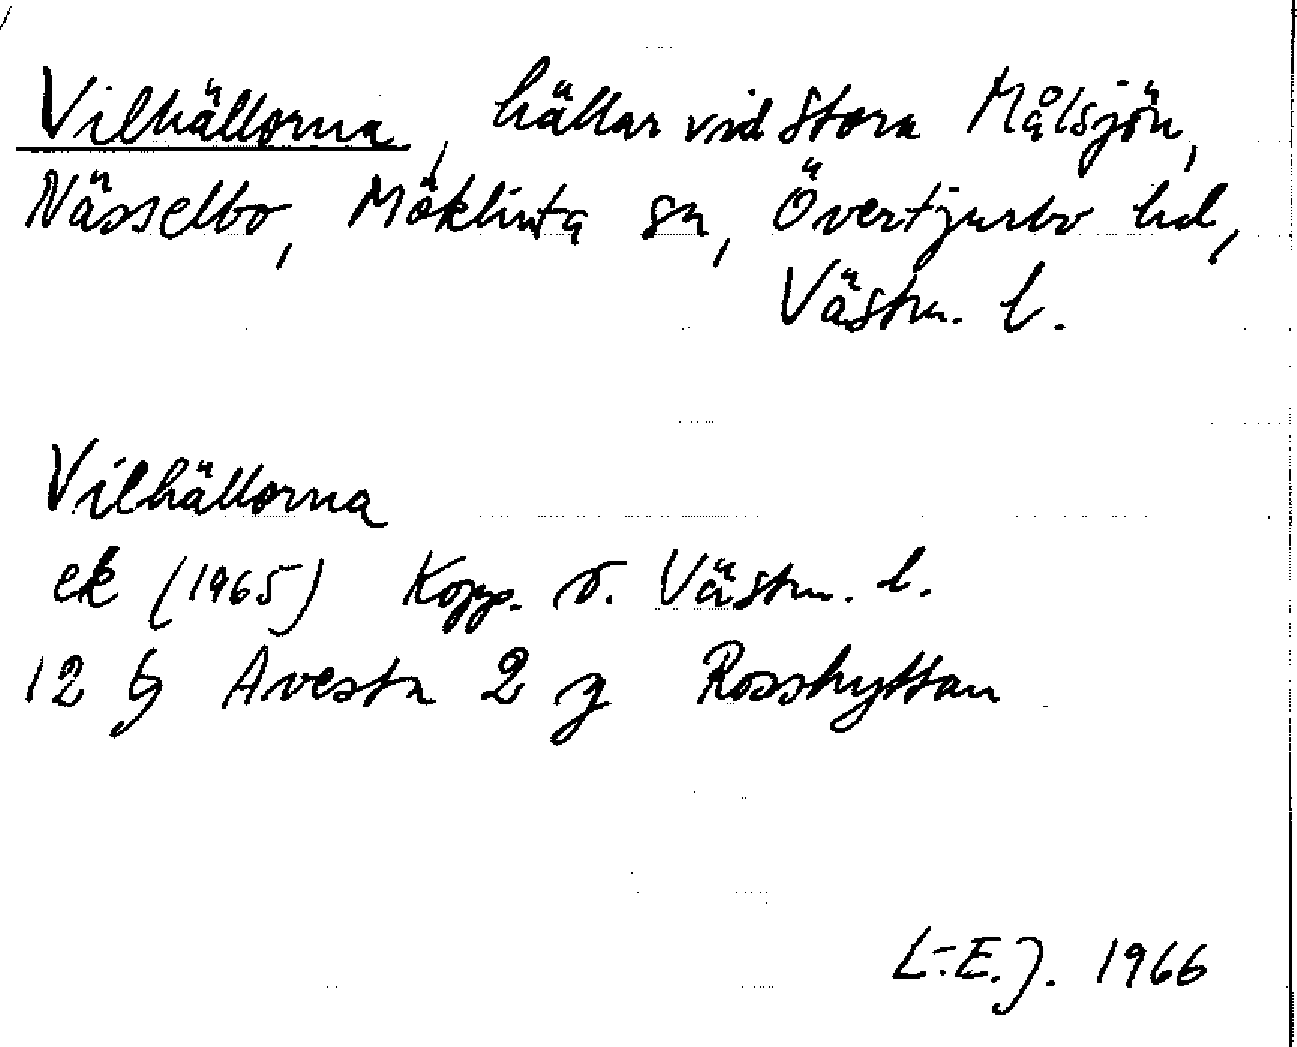 Vilhällorna, hällar vid Stora Målsjön,
Nässelbo, Möklinta sn, Övertjurbo hd,
Västm. l.
Vilhällorna
ek (1965) Kopp. o. Västm. l.
12 G Avesta 2 g Rosshyttan
L.-E.J. 1966